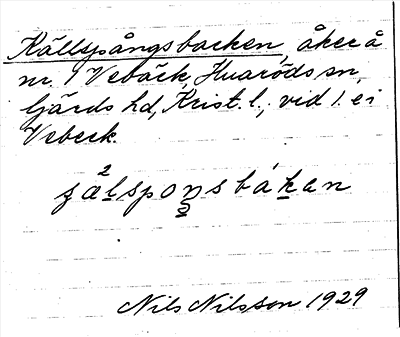 Källspångsbacken, åker å
nr. 1 Vebäck, Huaröds sn,
Gärds hd, Krist. l., vid l. ei
Vebeck.
sælsponsbákan
Nils Nilsson 1929